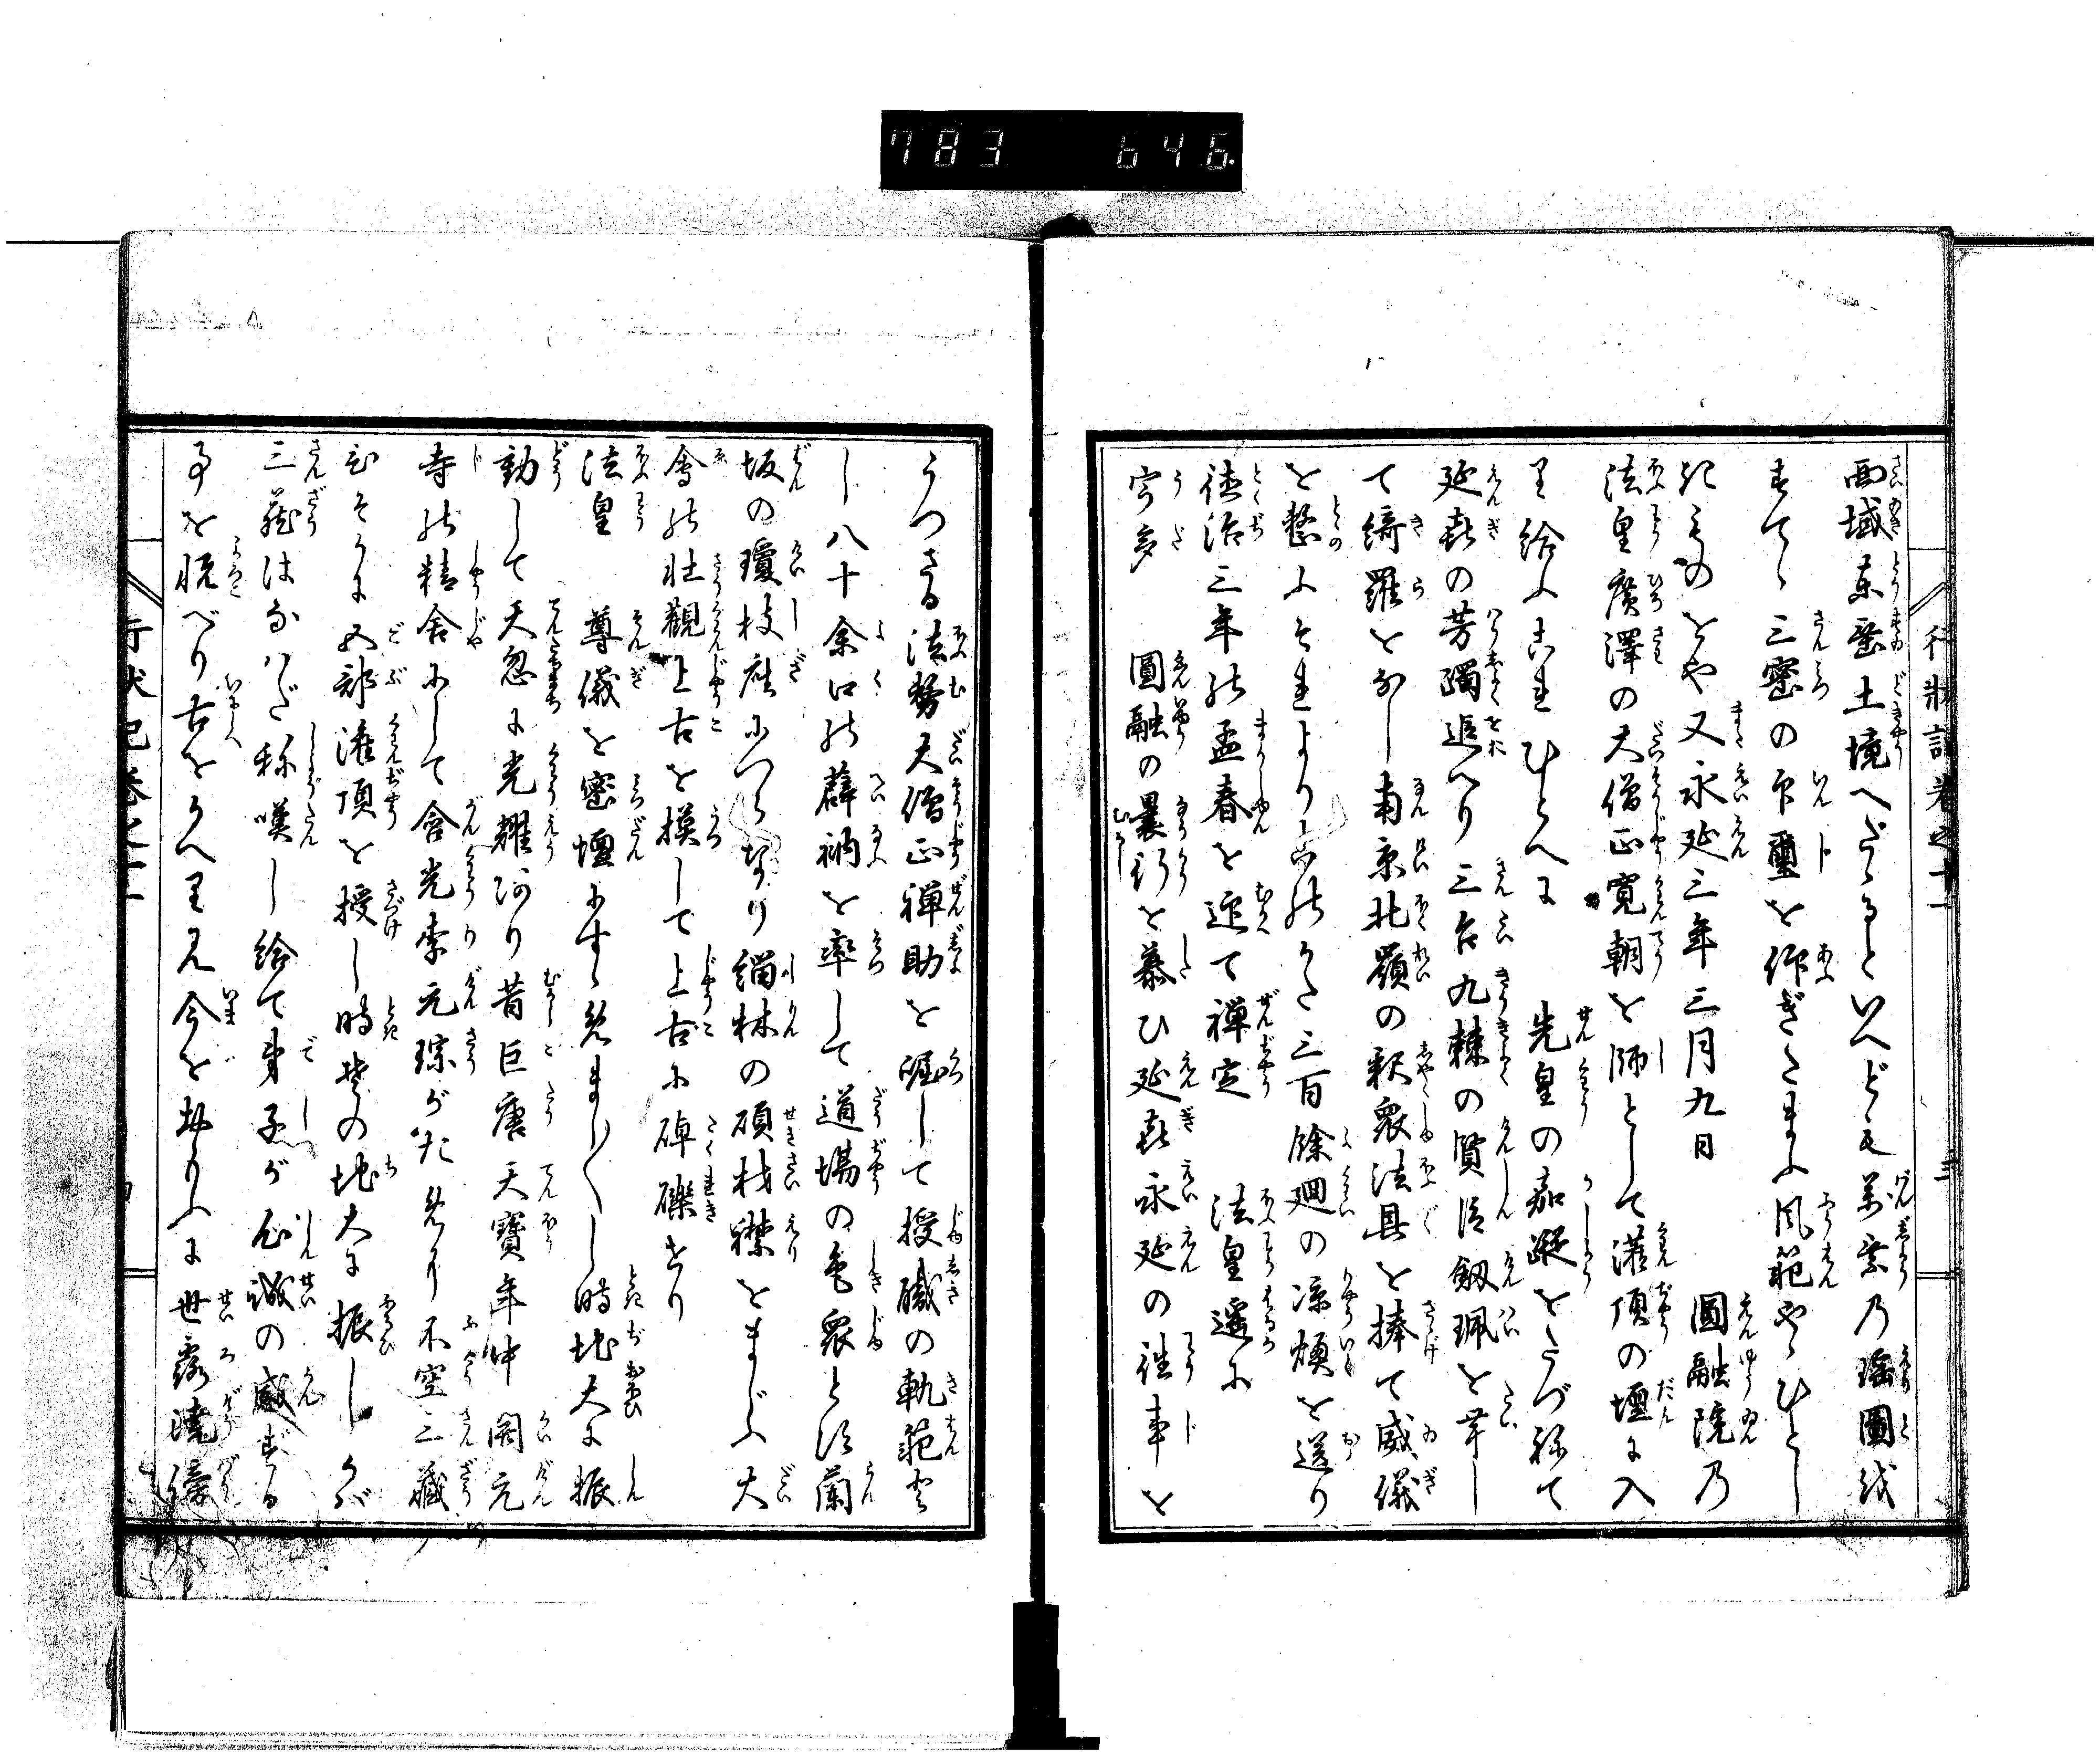 783 646
行状記巻之十一
西域東垂土境へだゝるといへども萬乗乃瑶圖越
すてゝ三密の印璽を仰ぎたまふ風範やゝひとし
きものをや又永延三年三月九日 圓融院乃
法皇廣澤の大僧正寛朝を師として灌頂の壇に入
里給ふこれひとへに 先皇の嘉蹤をたづねて
延喜の芳躅追へり三台九棘の賢臣劔珮を帯し
て綺羅をなし南京北嶺の釈衆法具を捧て威儀
を整ふそれよりこのかた三百餘廻の凉燠を送り
徳治三年の孟春を迎て禅定 法皇遥に
宇多 圓融の曩行を慕ひ延喜永延の往事を
うつさる法務大僧正禅助を囑して授職の軌範と
し八十余口の薜衲を率して道場の色衆とす蘭
坂の瓊枝座につらなり緇林の碩材襟をまじふ大
會の壮觀上古を摸して上古に碑礫せり
法皇 尊儀を密壇にすゝめまし〳〵し時地大に振
動して天忽に光耀あり昔巨唐天寳年中開元
寺の精舎にして含光李元琮がために不空三藏
ひそかに五部灌頂を授し時其の地大に振しかば
三藏はなはだ称嘆し給て弟子が心誠の感ずる
事を悦べり古をかへり見今をおもふに世
行状記巻之十一